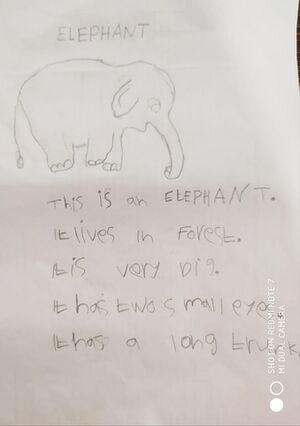 ELEPHANT
This is an ELEPHANT.
It lives in Forest.
It is very big.
It has two small eye
It has a long trunk.
SHOT ON REDMI NOTE 7
MI DUAL CAMERA